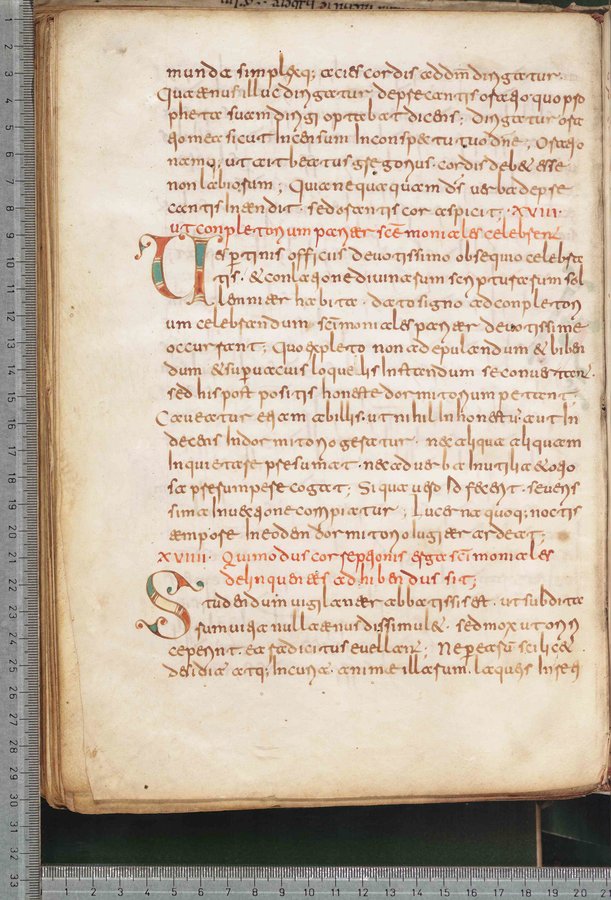 munda simplexq; acies cordis ad dn̄m dirigatur.
Quatenus illuc dirigatur deprecantis oratio quo pro
pheta suam dirigi optabat dicens; dirigatur ora
tio mea sicut Incensum Inconspectu tuo dn̄e; Oratio
namq; ut ait beatus gregorius. cordis deb& esse
non labiorum; Quia nequaquam d̄s uerba depre
cantis Intendit. sed orantis cor aspicit; XVIII.
ut conpletorium pariter sc̄e moniales celebrent
Uespertinis officiis deuotissimo obsequio celebra
tis. & conlatione diuinarum scripturarum sol
lemniter habita. dato signo ad conpletori
um celebrandum sc̄imoniales pariter deuotissime
occurrant; Quo expleto non ad epulandum & biben
dum & sup̄uacuis loquelis Instandum se conuertant.
sed his post positis honeste dormitorium petant;
Caueatur etiam ab illis. ut nihil Inhonestū aut In
decens Indormitorio geratur. nec aliqua aliquam
Inquietare presumat. nec ad uerba Inutilia & otio
sa presumpere cogat; Si qua uero Id fecerit. seueris
sima Inuectione corripiatur; Lucerna quoq; noctis
tempore Ineodem dormitorio Iugiter ardeat;
XVIIII. Qui modus correptionis erga sc̄i moniales
delinquentes adhibendus sit;
Studendum uigilanter abbatissis est. ut subdita
rum uitia nullatenus dissimul&. sed mox ut oriri
ceperint. ea radicitus euellant; Ne p̄ earū scilic&
desidia atq; Incuria. anime illarum. laqueis Inreti